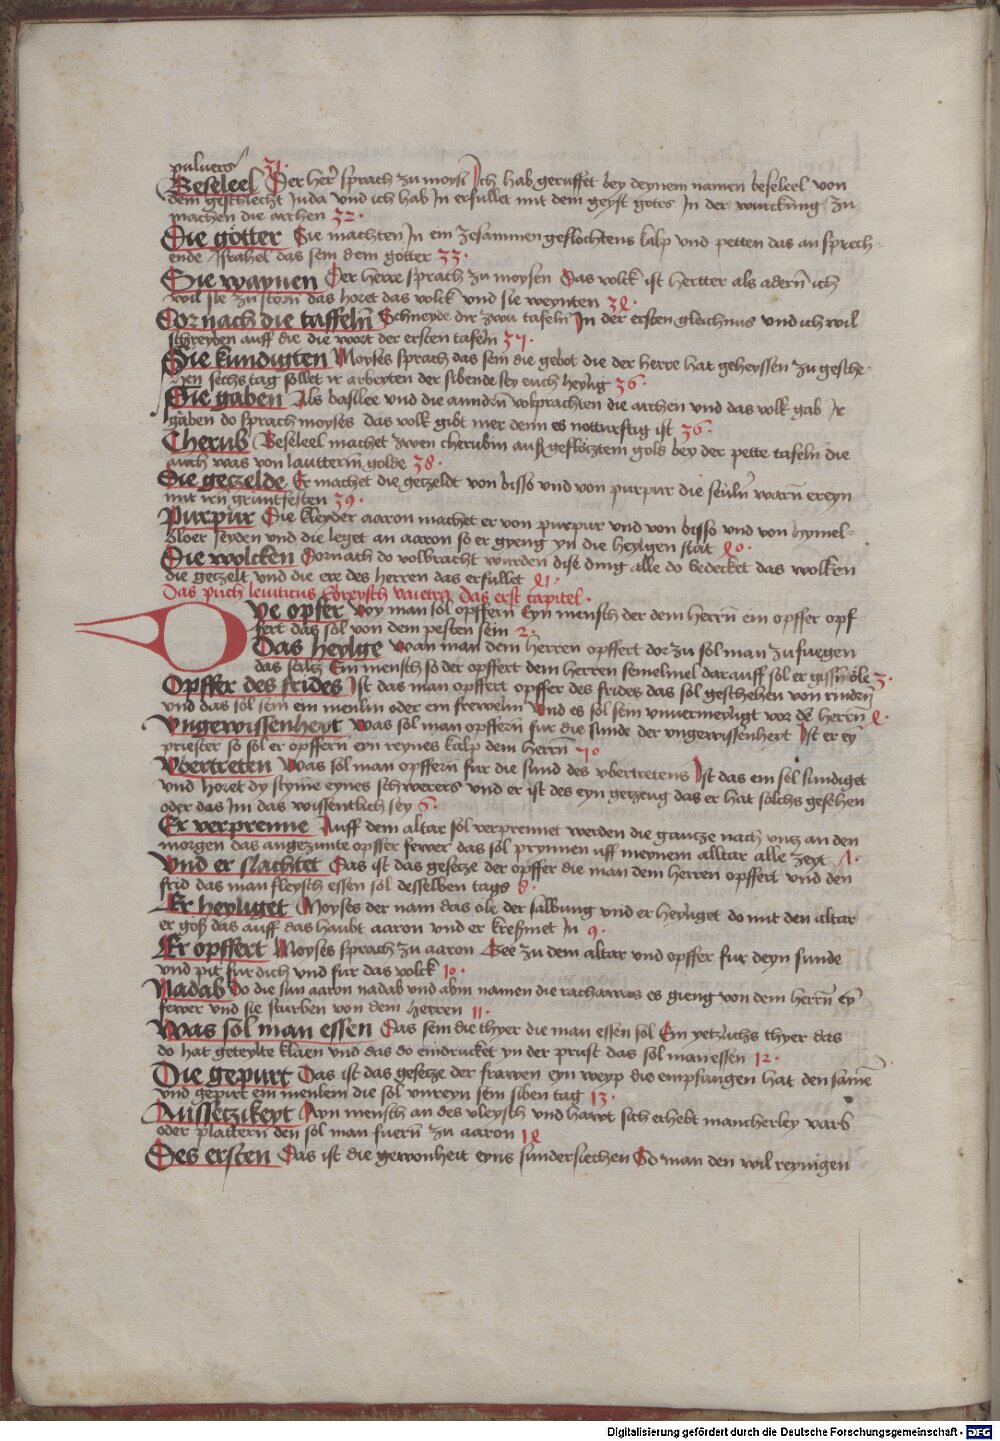 puluers 31.
Beseleel Der her sprach zu moysi Ich hab geruffet bey deynem namen beseleel von
dem geschlecht Juda vnd ich hab In erfullet mit dem geyst gotes In der wurckung zu
machen die archen 32.
Die gotter Sie machten In ein zesammen geflochtens kalp vnd petten das an sprech-
ende Israhel das sein dein gotter 33.
Sie waynen Der herre sprach zu moysen Das volck ist hertter als adern ich
wil sie zu storn das horet das volck vnd sie weynten 34.
Dornach die taffeln Schneyde dir zwu tafeln In der ersten gleichnus vnd ich wil
schreyben auff die die wort der ersten tafeln 35.
Sie kundigten Moyses sprach das sein die gebot die der herre hat geheyssen zu gesche-
hen sechs tag sollet ir arbeyten der sibende sey euch heylig 36
Die gaben Als basilee vnd die anndern volprachten die archen vnd das volk gab Ir
gaben do sprach moyses das volk gibt mer denn es notturftig ist 36.
Cherub Beseleel machet zwen cherubin auß geflotztem gold bey der pette tafeln die
auch was von lautterm golde 38.
Die getzelde Er machet die getzeldt von bisso vnd von purpur die seuln warn ereyn
mit irn gruntfesten 39.
Purpur Die kleyder aaron machet er von purpur vnd von bisso vnd von hymel-
bloer seyden vnd die leget an aaron so er gyeng yn die heyligen stat 40.
Die wolcken Dornach do volbracht wurden dise ding alle do bedecket das wolken
die getzelt vnd die ere des herren das erfullet 41.
Das puch leuiticus Ebreysch vaietra das erst capitel.
Die opfer Woy man sol opffern Eyn mensch der dem herrn ein opffer opf-
fert das sol von dem pesten sein 2.
Das heylge Wan man dem herren opffert dor zu sol man zufuegen
das saltz Ein mensch so der opffert dem herren semelmel darauff sol er gissn öle 3.
Opffer des frides Ist das man opffert opffer des frides das sol geschehen von rindern
vnd das sol sein ein menlin oder ein frewelin Vnd es sol sein vnuermeyligt vor de herrn 4.
Vngewissenheyt Was sol man opffern fur die sunde der vngewissenheyt Ist er ey
priester so sol er opffern eyn reynes kalp dem herrn
Vbertreten Was sol man opffern fur die sund des vbertretens Ist das ein sel sundiget
vnd horet dy stymme eynes schwerers vnd er ist des eyn getzeug das er hat solchs gesehen
oder das im das wissentlich sey 6.
Er verprenne Auff dem altar sol verprennet werden die gantze nach vntz an den
morgen das angezunte opffer fewer das sol prynnen uff meynem alltar alle zeyt
Vnd er slachtet Das ist das gesetze der opffer die man dem herren opffert vnd den
frid das man fleysch essen sol desselben tags 8.
Er heyliget Moyses der nam das ole der salbung vnd er heyliget do mit den altar
er goß das auff das haubt aaron vnd er kreßmet In 9.
Er opffert Moyses sprach zu aaron Gee zu dem altar vnd opffer fur deyn sunde
vnd pit fur dich vnd fur das volck 10.
Nadab Do die sun aaron nadab vnd abiu namen die es gieng von dem herrn ey
fewer vnd sie sturben von dem herren 11.
Was sol man essen Das sein die thyer die man essen sol Ein yetzlichs thyer das
do hat geteylte klaen vnd das do eindrucket yn der prust das sol man essen 12.
Die gepurt Das ist das gesetze der frawen eyn weyp die empfangen hat den samen
vnd gepirt ein menlein die sol vnreyn sein siben tag 13.
Aussetzikeyt Ayn mensch an des vleysch vnd hawt sich erhebt mancherley varb
oder plattern den sol man fuern zu aaron 14
Des ersten Das ist die gewonheit eyns sundersiechen So man den wil reynigen
Digitalisierung gefördert durch die Deutsche Forschungsgemeinschaft - DFG